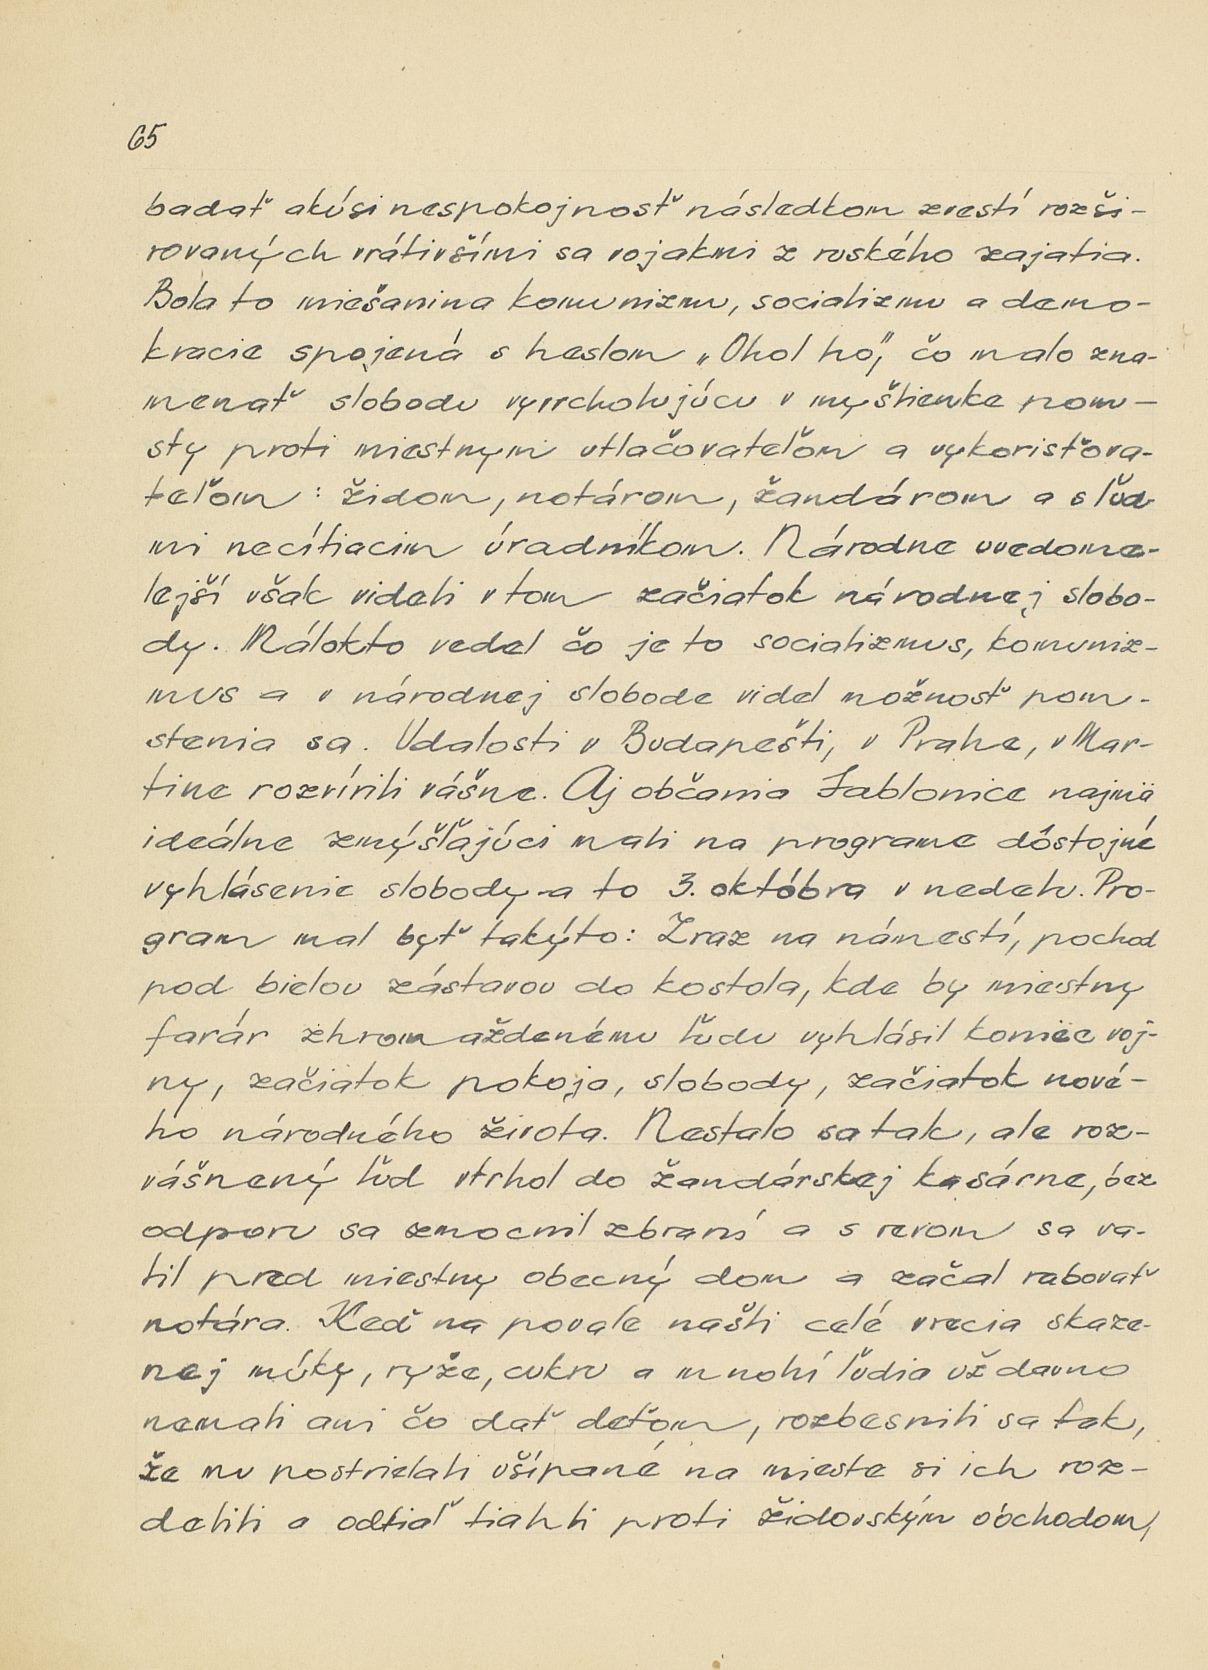 65
badať akúsi nespokojnosť následkom zvestí rozši-
rovaných vrátivšími sa vojakmi z ruského zajatia.
Bola to miešanina komunizmu, socializmu a demo-
kracie spojená s heslom „Ohol ho", čo malo zna-
menať slobodu vyvrcholujúcu v myštienke pom-
sty proti miestnym utlačovateľom a vykorisťova-
teľom: židom, notárom, žandárom a s ľud
mi necítiacim úradníkom. Národne uvedome-
lejší však videli v tom začiatok národnej slobo-
dy. Málokto vedel čo je to socializmus, komuniz-
mus a v národnej slobode videl možnosť pom-
stenia sa. Udalosti v Budapešti, v Prahe, v Mar-
tine rozvírili vášne. Aj občania Jablonice najmä
ideálne zmýšľajúci mali na programe dôstojné
vyhlásenie slobody a to 3. októbra v nedeľu. Pro-
gram mal byť takýto: Zraz na námestí, pochod
pod bielou zástavou do kostola, kde by miestny
farár zhromaždenému ľudu vyhlásil koniec voj-
ny, začiatok pokoja, slobody, začiatok nové-
ho národného života. Nestalo sa tak, ale roz-
vášnený ľud vtrhol do žandárskej kasárne, bez
odporu sa zmocnil zbraní a s revom sa va-
lil pred miestny obecný dom a začal rabovať
notára. Keď na povale našli celé vrecia skaze-
nej múky, ryže, cukru a mnohí ľudia už dávno
nemali ani čo dať deťom, rozbesnili sa tak,
že mu postrielali ošípané na mieste si ich roz-
delili a odtiaľ tiahli proti židovským obchodom,